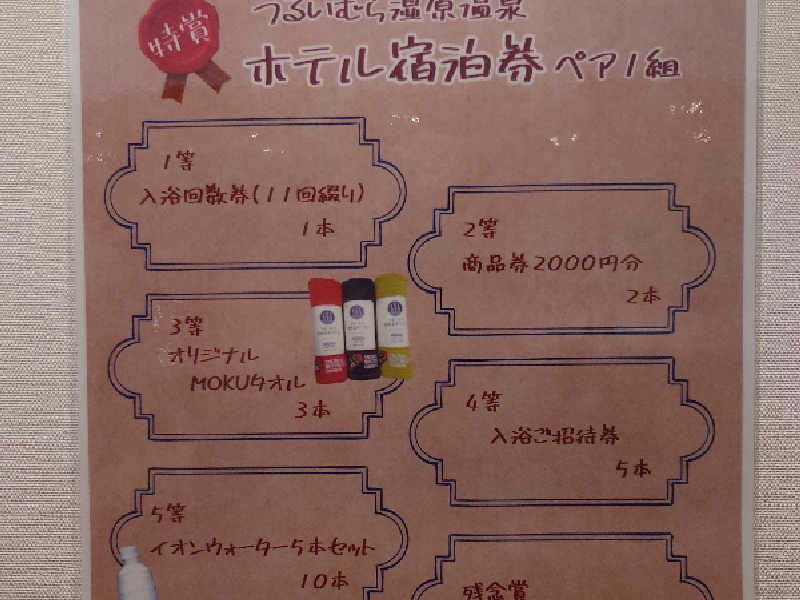 特賞
つるいむら湿原温泉
ホテル宿泊券 ペア1組
1等
入浴回数券(11回綴り)
1本
2等
商品券2000円分
2本
3等
オリジナル
MOKUタオル
3本
4等
入浴ご招待券
5本
5等
イオンウォーター5本セット
10本
残念賞